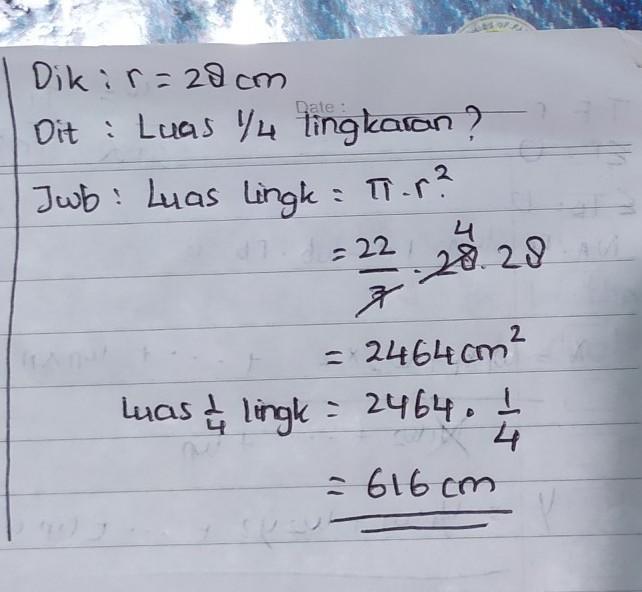 Dik : r = 28 cm
Date :
Dit : Luas 1/4 lingkaran?
Jwb : Luas Lingk = π . r².
= 22/7 . 28 4 . 28
= 2464 cm²
Luas 1/4 lingk = 2464 . 1/4
= 616 cm